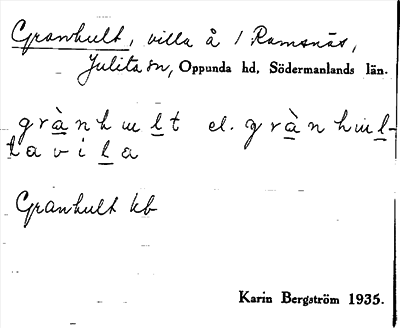 Granhult, villa å 1 Ramsnäs,
Julita sn, Oppunda hd, Södermanlands län.
grànhult el. grànhul-
tavila
Granhult kb
Karin Bergström 1935.